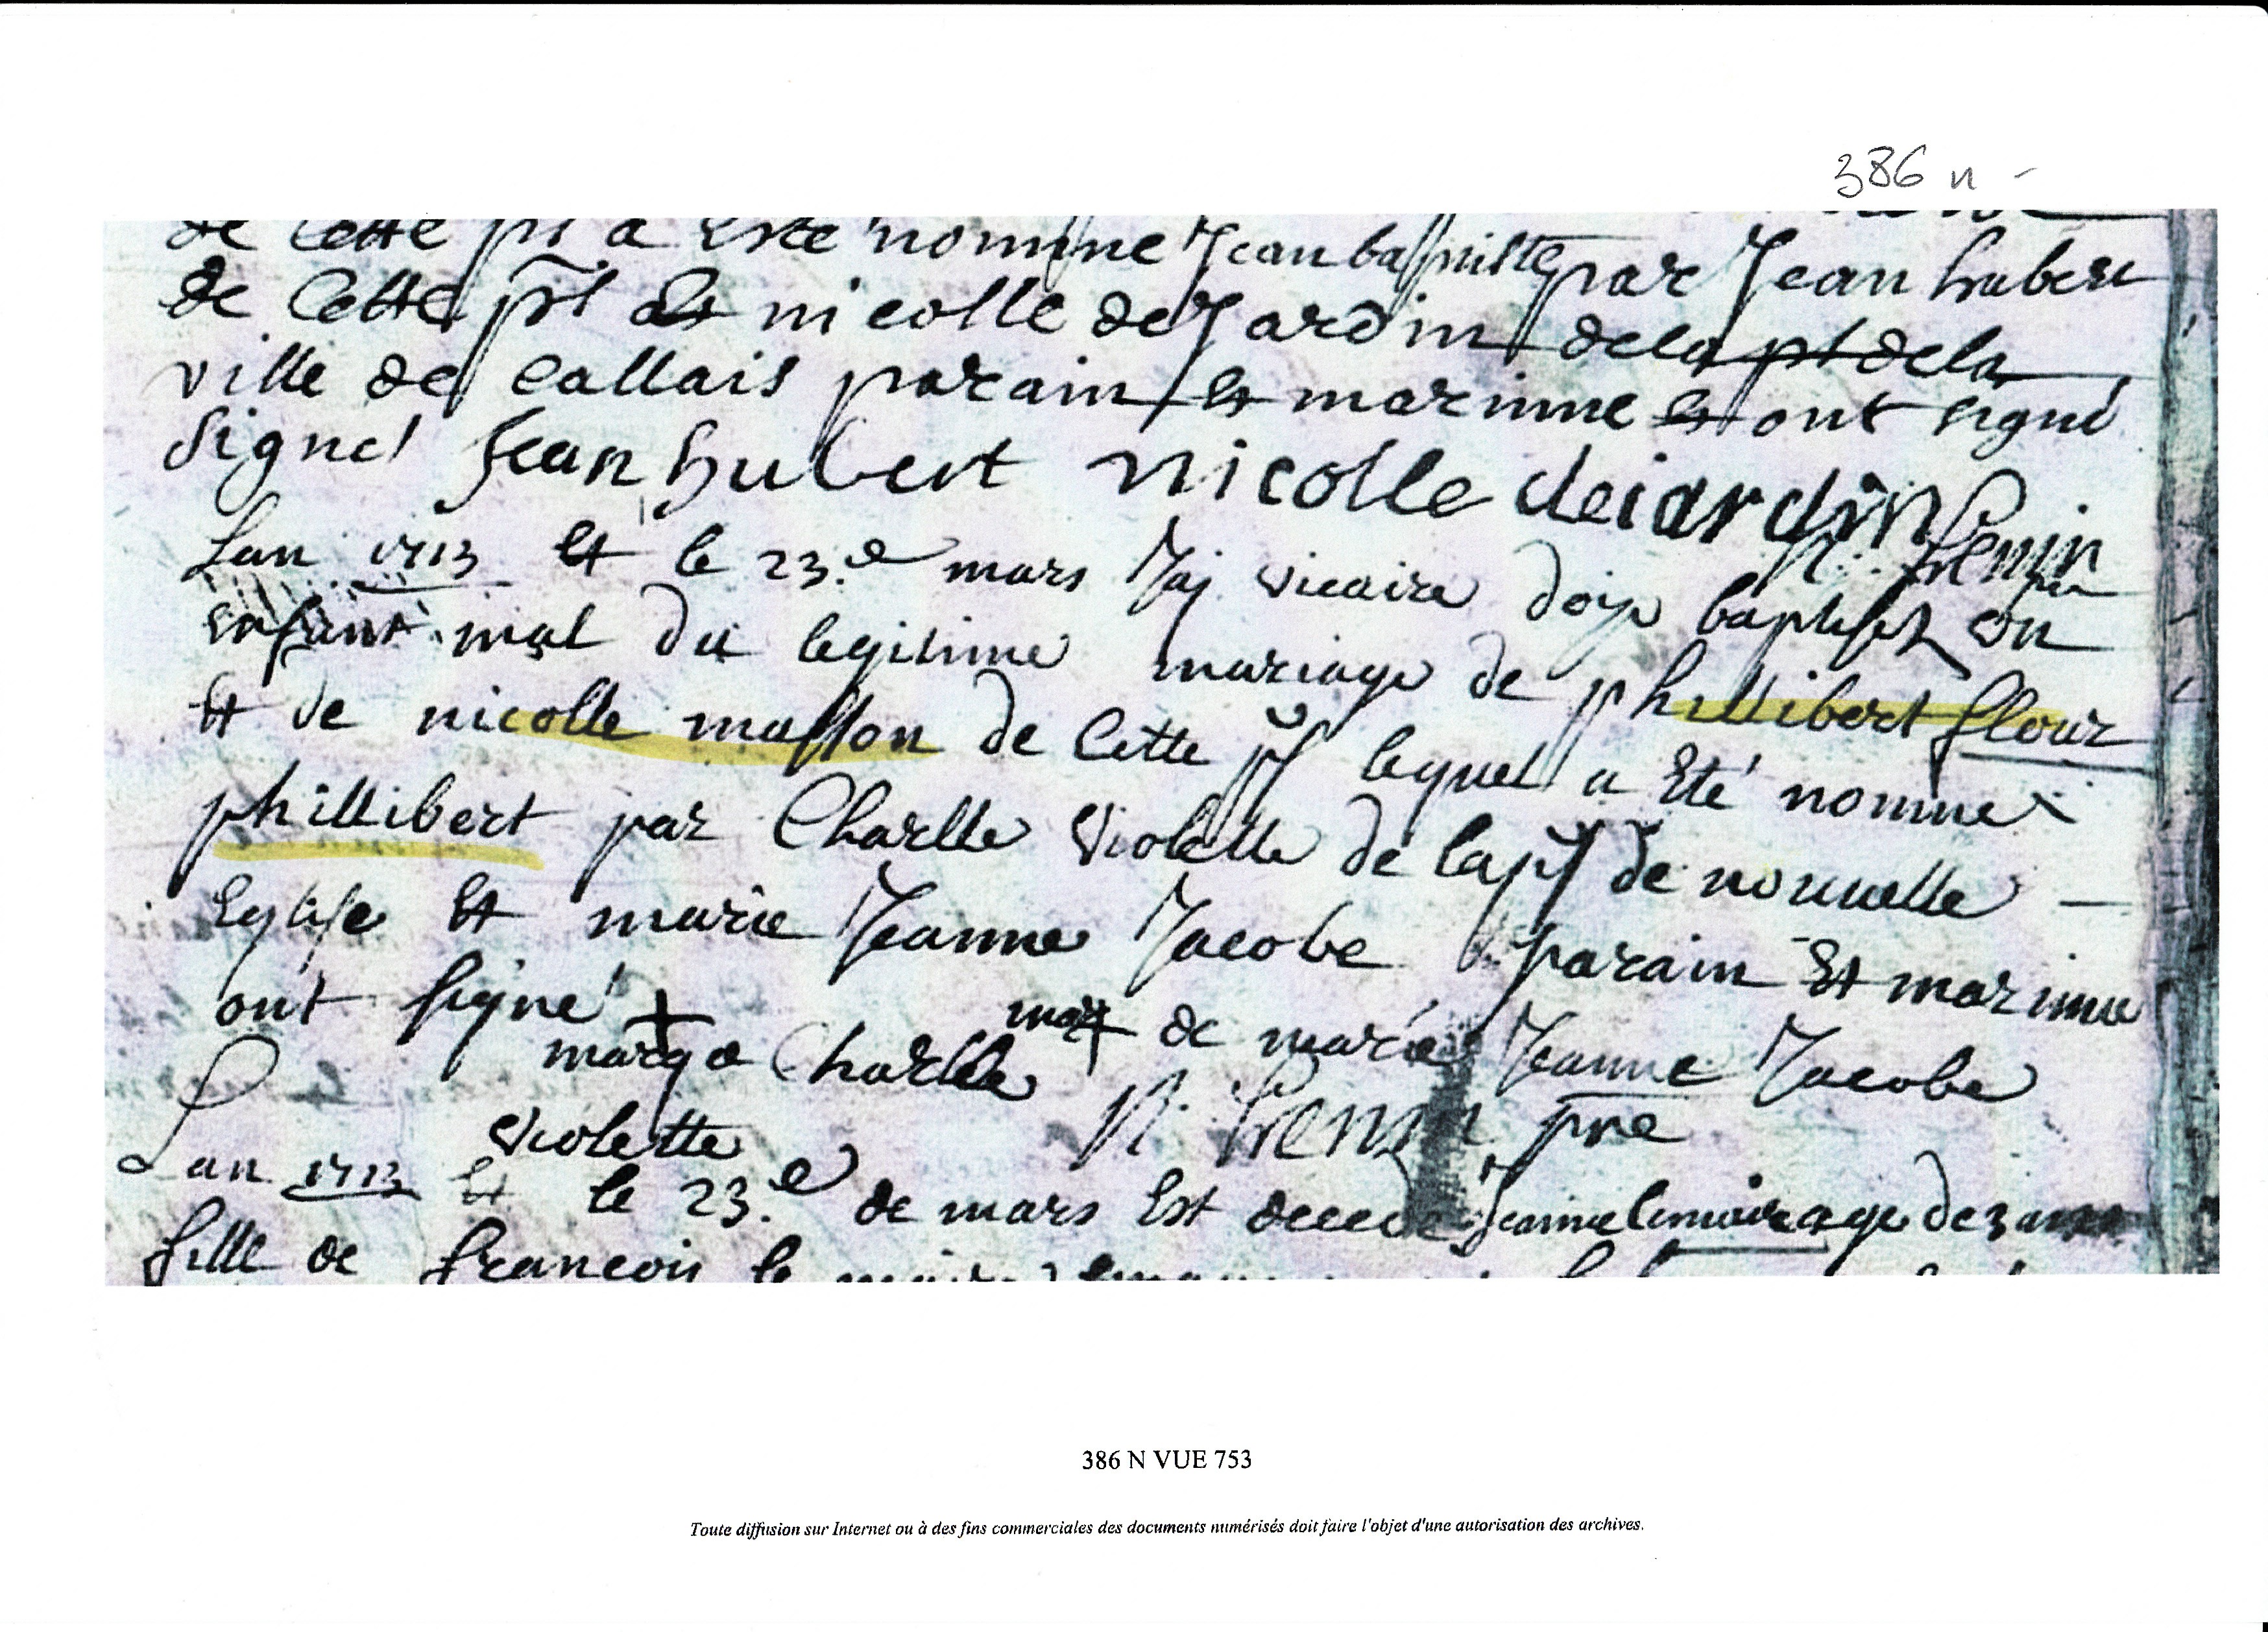 386 n -
de cette pt a este nommé Jean baptiste par Jean hubert
de cette pt et nicolle de Jardin de la pt de la
ville de callais parain et marinne et ont signé
Signé Jean hubert nicolle deiardin N. Penin
pre
Lan 1713 et le 23.e mars Jaj vicaire doije baptisez vn
enfant mal du legitime mariage de phillibert flour
et de nicolle masson de cette pt lequel a été nommé
phillibert par Charlle violette de la pt de nouuelle —
Eglise et marie Jeanne Jacobe parain et marinne
ont signé + marq + de marie Jeanne Jacobe
marqe Charlle
violette N. Penin pre
Lan 1713 et le 23.e de mars est decedé Jeanne lemaire age de 3 ans
fille de francois le maire
386 N VUE 753
Toute diffusion sur Internet ou à des fins commerciales des documents numérisés doit faire l'objet d'une autorisation des archives.